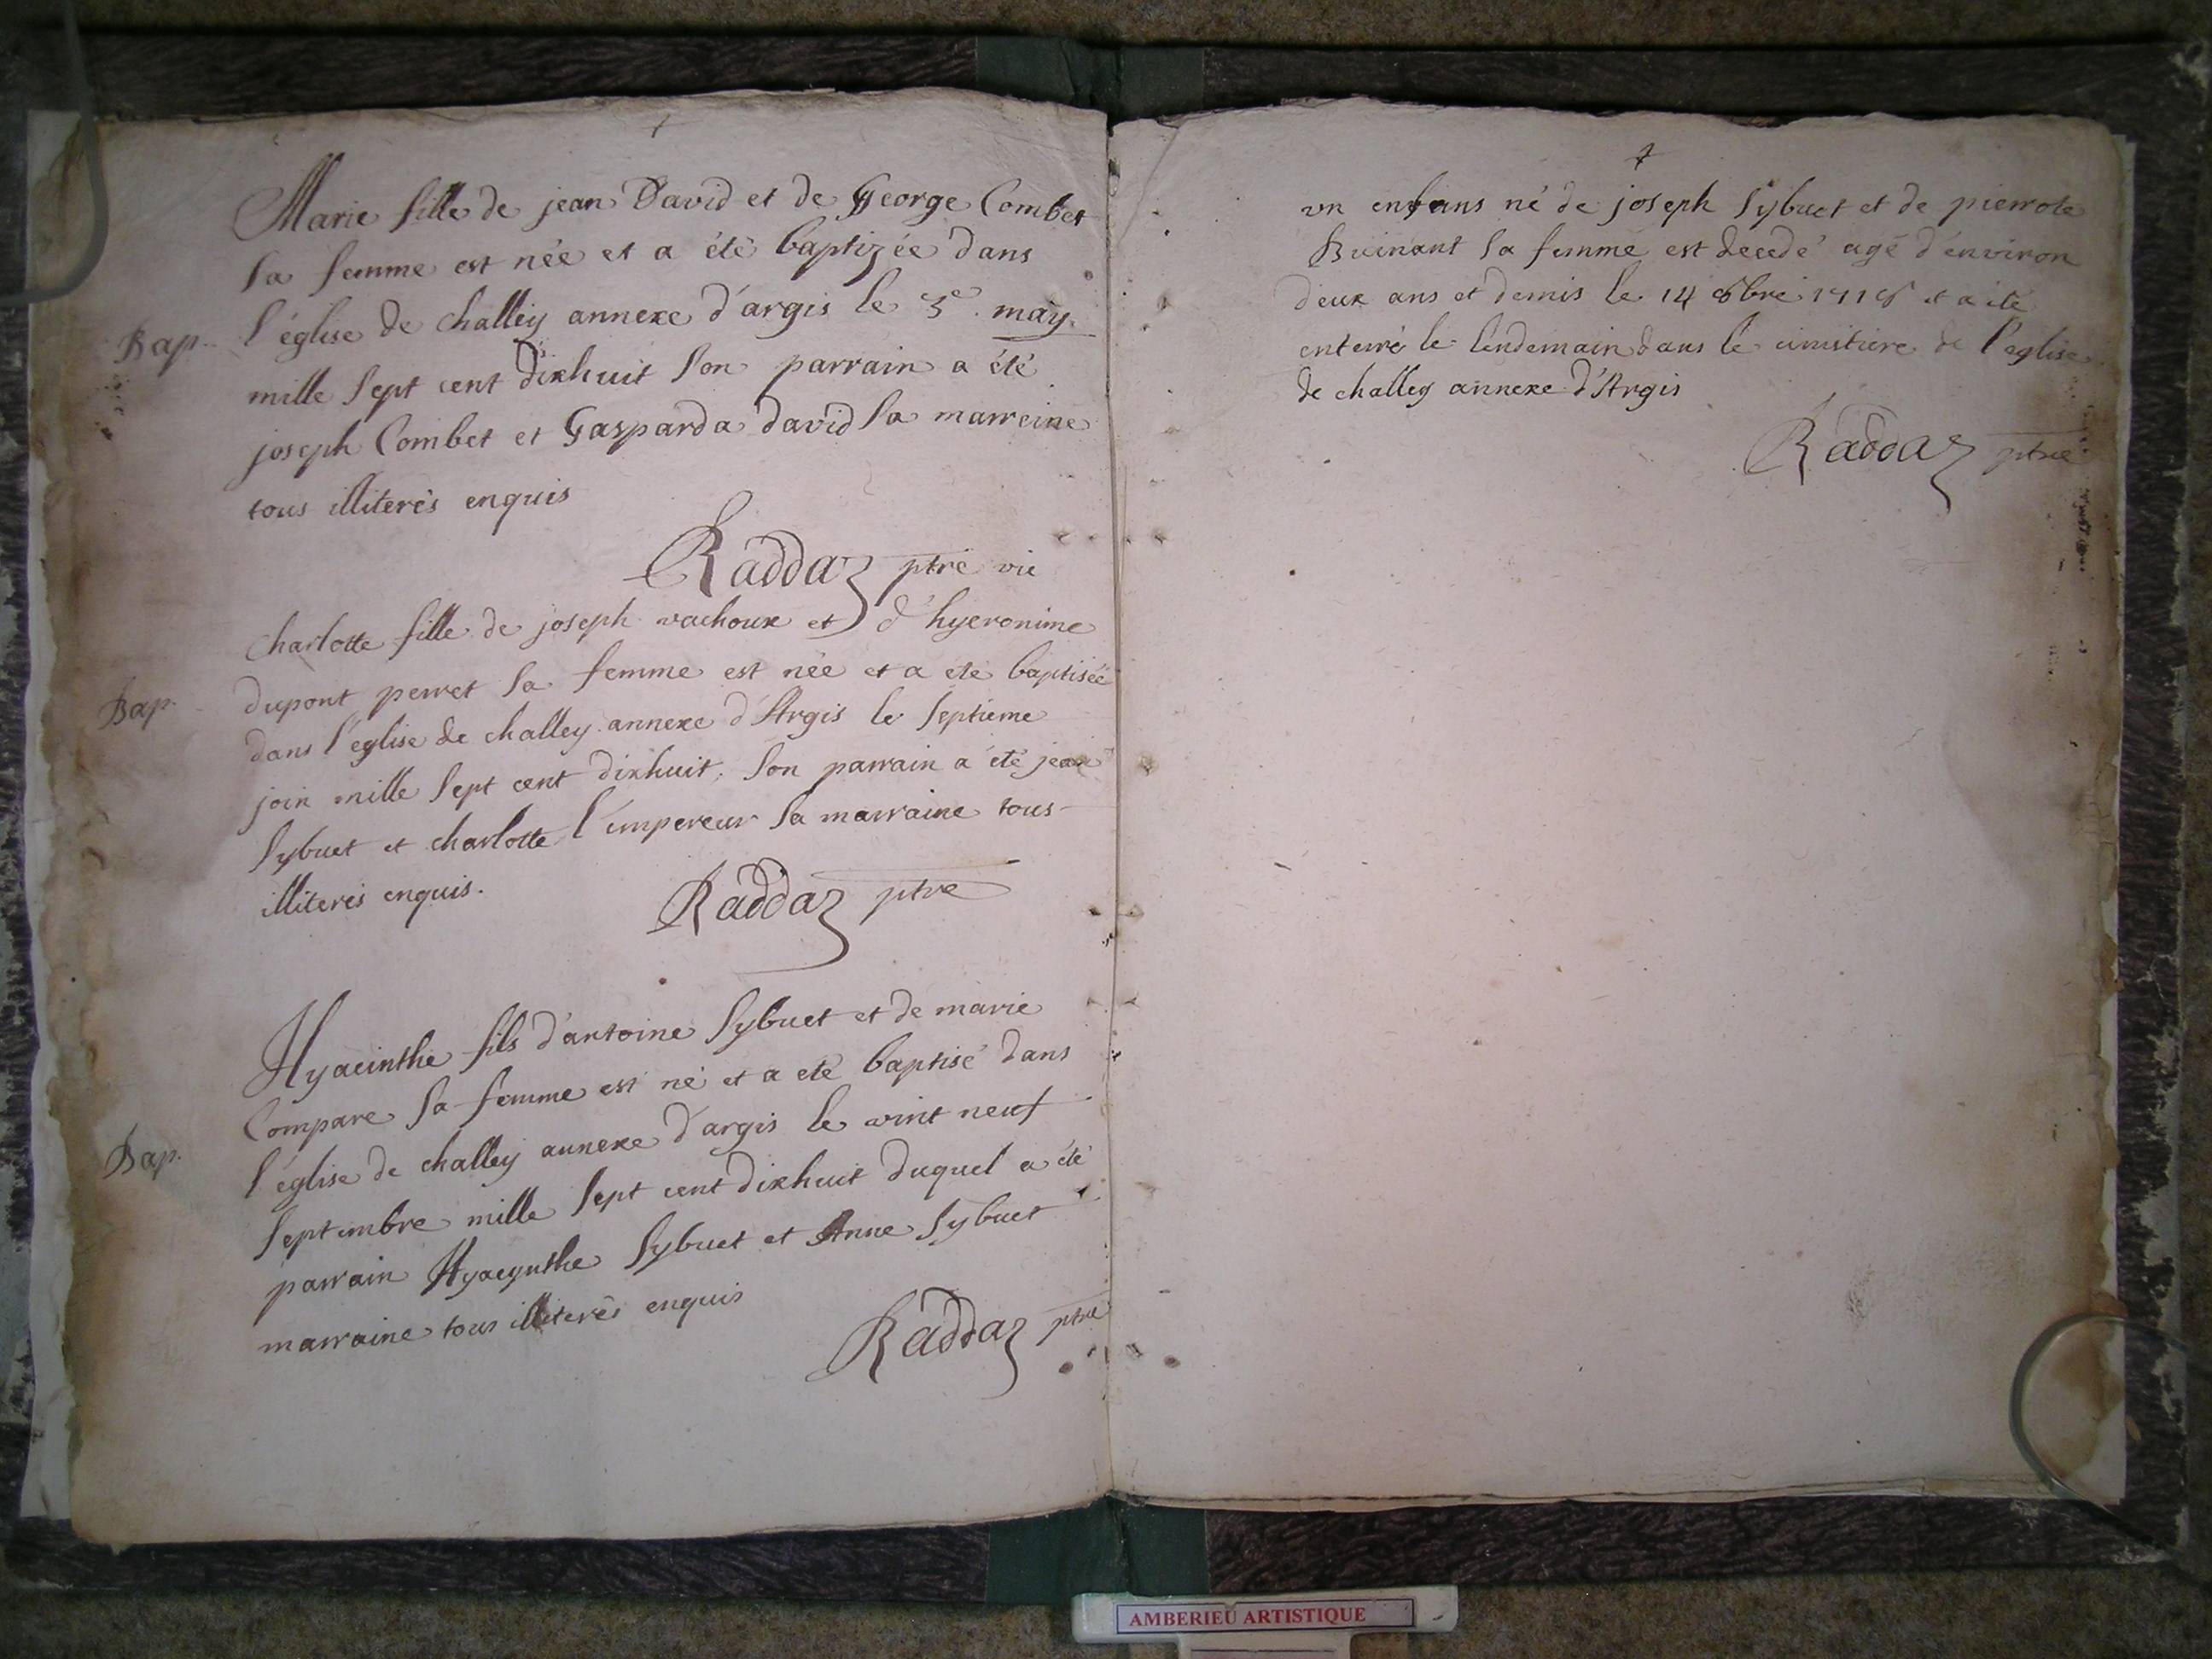 Marie fille de jean David et de George Combet
sa femme est née et a été baptizée dans
Bap. l'église de challey annexe d'argis le 3e. may
mille sept cent dixhuit son parrain a été
joseph Combet et Gasparda david sa marreine
tous illiterés enquis
Raddaz ptre vic
charlotte fille de joseph vachoux et d'hyeronime
Bap. dupont perret sa femme est née et a eté baptisée
dans l'eglise de challey annexe d'Argis le septieme
join mille sept cent dixhuit, son parrain a été jean
sybuet et charlotte l'empereur sa marraine tous
illiterés enquis.
Raddaz ptre
Hyacinthe fils d'antoine sybuet et de marie
Compare sa femme est né et a eté baptisé dans
Bap. l'église de challey annexe d'argis le vint neuf
septembre mille sept cent dixhuit duquel a été
parrain Hyacynthe sybuet et Anne sybuet
marraine tous illiterés enquis
Raddaz ptre
un enfans né de joseph sybuet et de pierrote
sa femme est decedé agé d'environ
deux ans et demis le 14 8bre et a été
enterré le lendemain dans le cimitiere de l'eglise
de challey annexe d'Argis
Raddaz ptre
AMBERIEU ARTISTIQUE